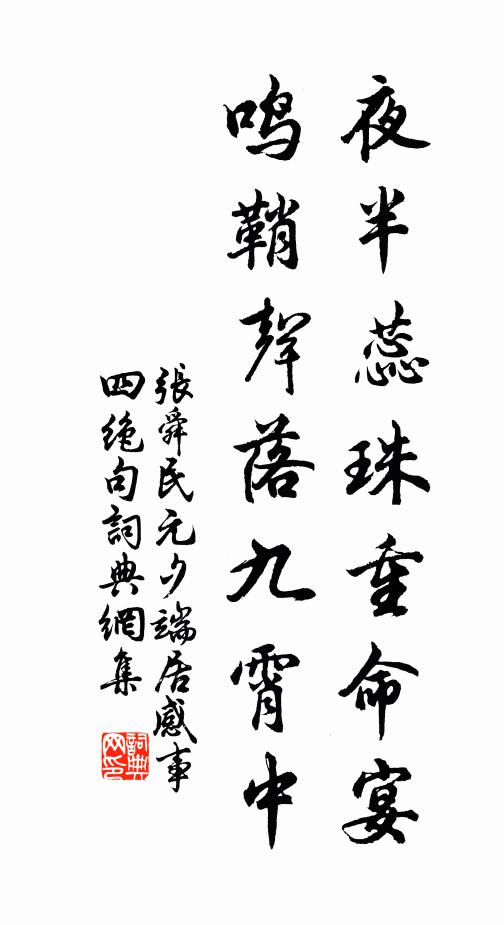 夜半蕊珠重命宴
鳴鞘聲落九霄中
張舜民元夕端居感事
四絶句詞典網集
詞典网印